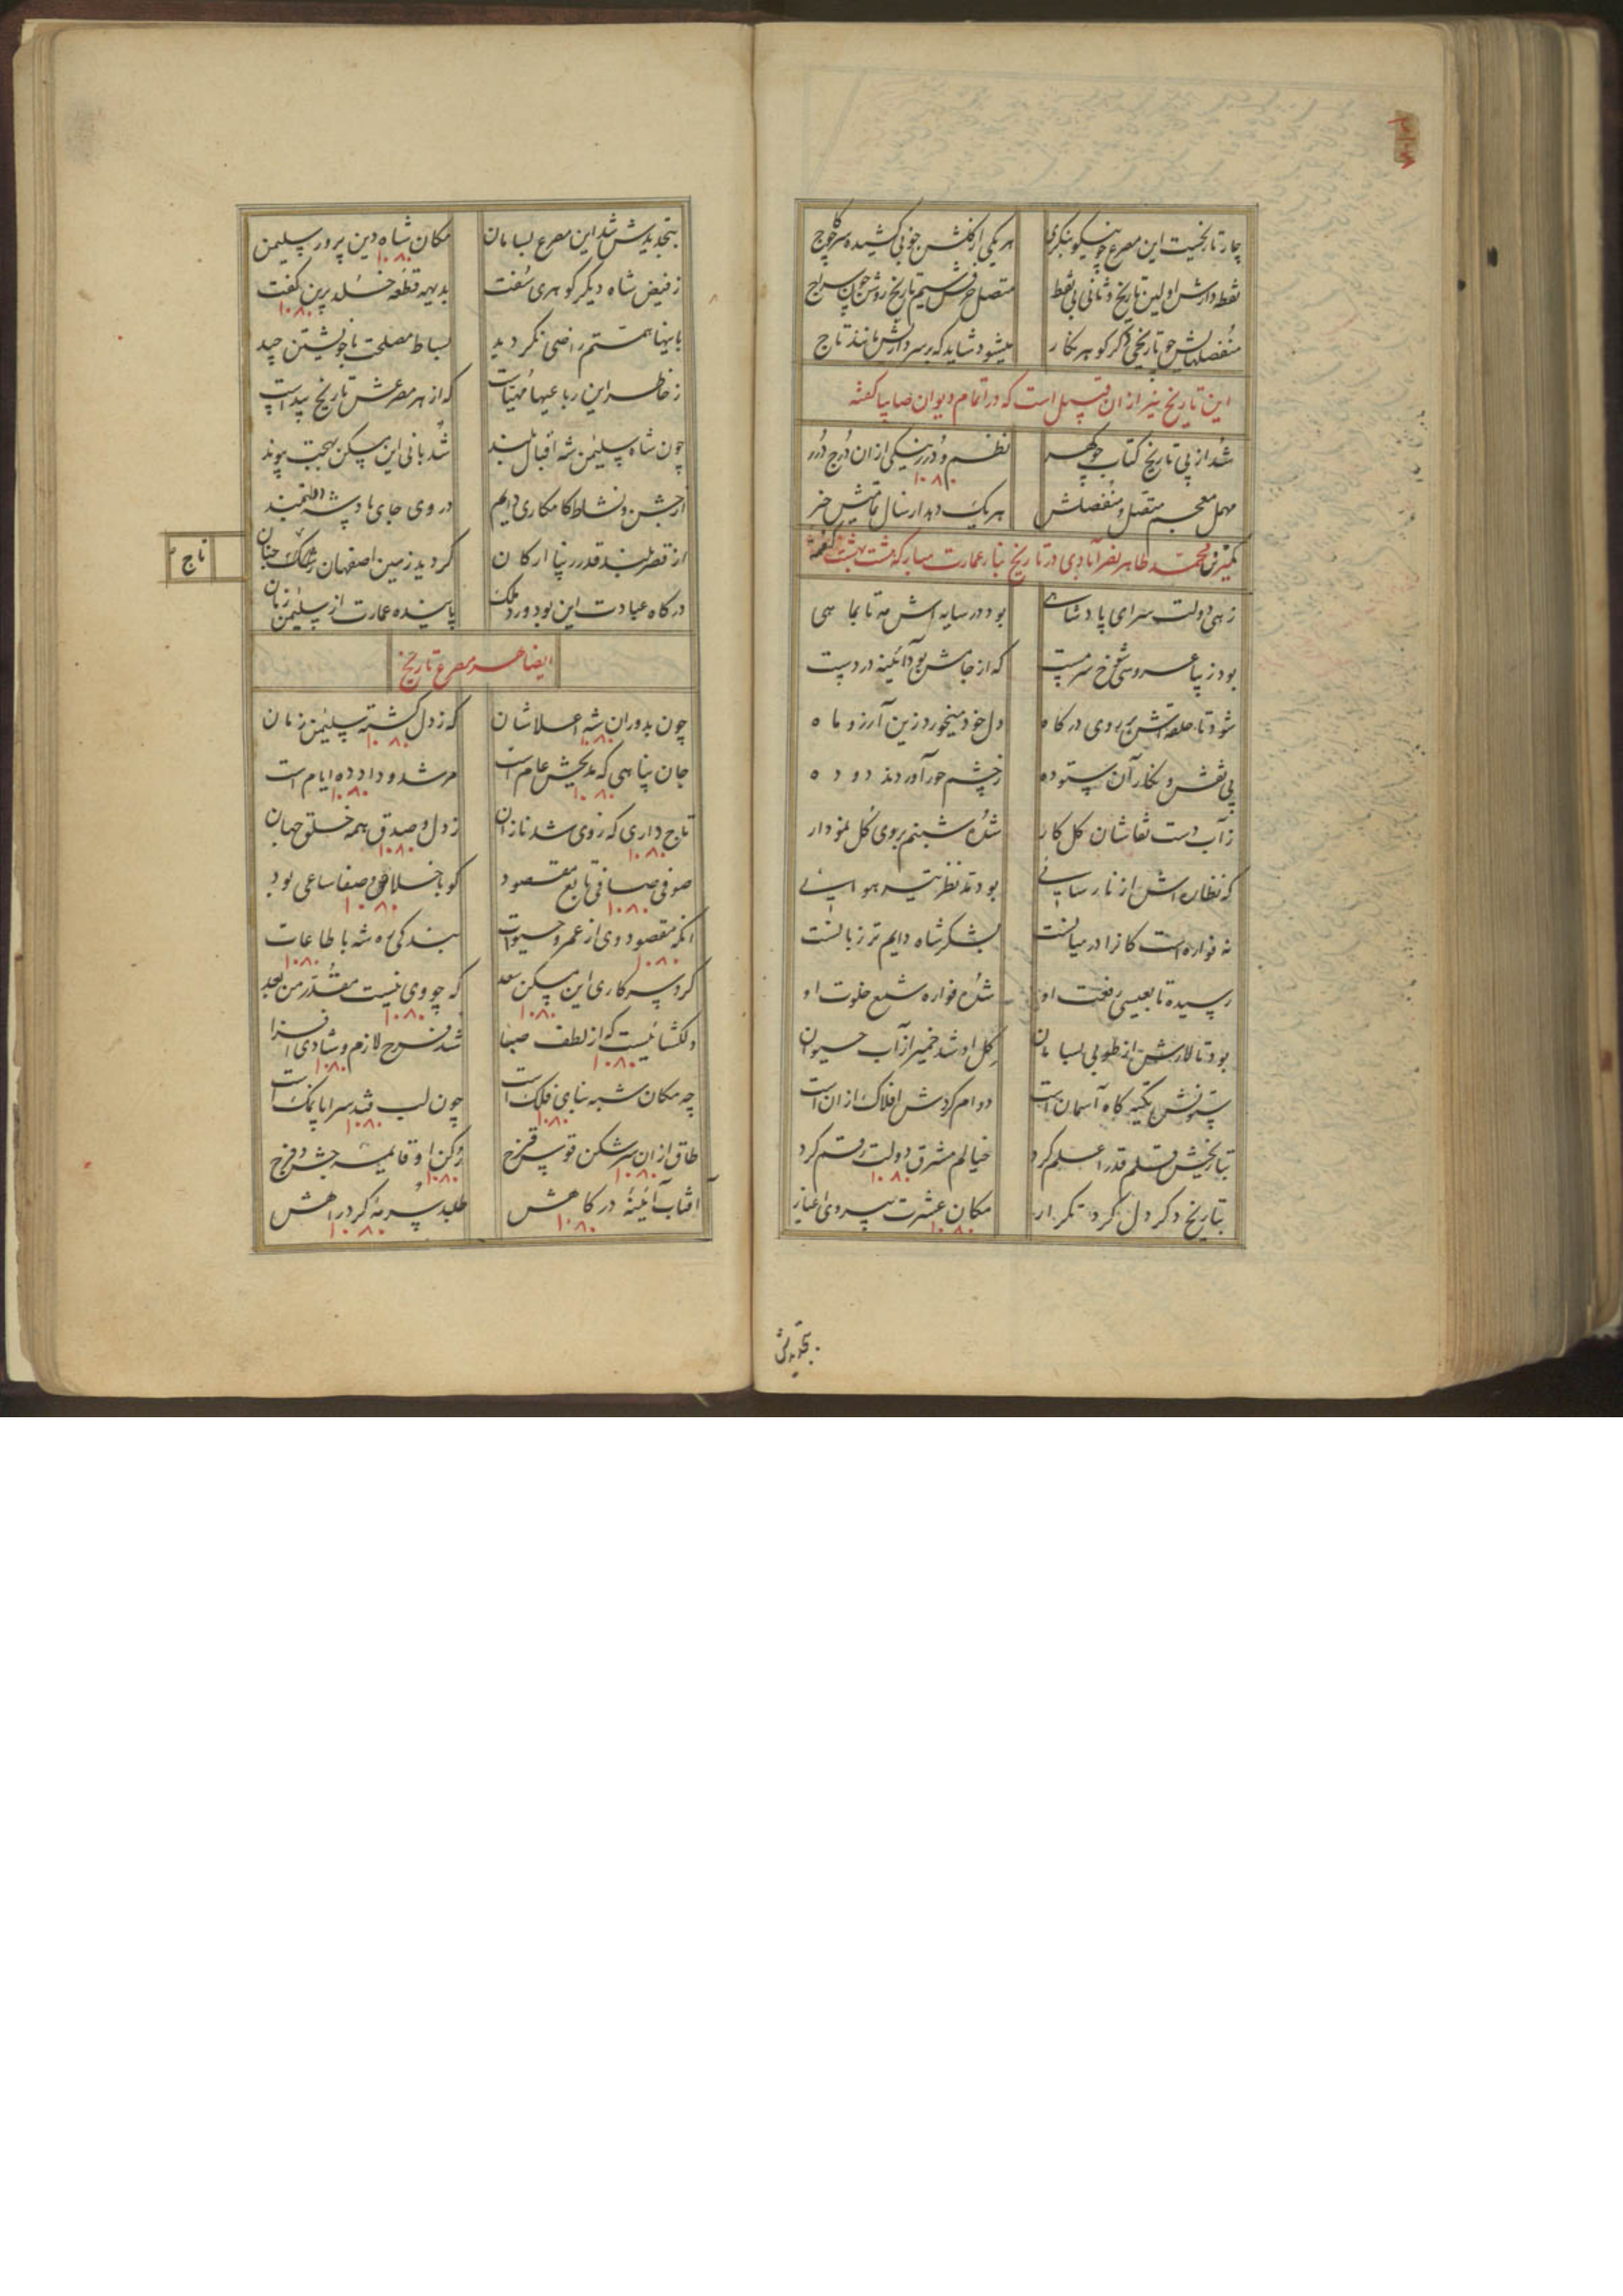 چار تاریخست این مصرع چو نیکو بنگری
هر یکی از کلکش جو بی کشیده سر
نقطه دارش اولین تاریخ و ثانی بی نقط
متصل حرفش سیم تاریخ روشن چون سراج
منفصلهایش چو تاریخی دگر گوهر نگار
میشود شاید که بر سر دارمش مانند تاج
این تاریخ نیز از ان قبیل است که در اتمام دیوان صایبا گفته
شد از پی تاریخ کتاب چو گهر
نظم و درر نیکی ازان درج درر
۱۰۸۰
مهمل معجم متصل و منفصلش
هر یک دهد از سال تمامیش خبر
کمترین محمد طاهر نصرآبادی در تاریخ بنا عمارت مبارکه هشت بهشت گفته
زهی دولت سرای پادشاهی
بود در سایه اش مه تا بماهی
بود زیبا عروسی شوخ سرمست
که از جامش بود آئینه در دست
شود تا حلقه اش بر روی درگاه
دل خود میخورد زین آرزو ماه
پی نقش و نگار آن ستوده
ز چشم حور آوردند دوده
ز آب دست نقاشان گل کار
شده شبنم بروی گل نمودار
که نظاره اش از نارسایی
بود مد نظر تیر هوایی
نه فواره است کانرا در میانست
بشکر شاه دایم تر زبانست
رسیده تا بعیسی رفعت او
شده فواره شمع خلوت او
بود تالارش از طوبی بسامان
گل او شد خمیر از آب حیوان
ستونش تکیه گاه آسمان است
دوام گردش افلاک ازان است
بتاریخش قلم قدر اعلم کرد
خیالم مشرق دولت رقم کرد
۱۰۸۰
بتاریخ دگر دل کرد تکرار
مکان عشرت بیروی اغیار
۱۰۸۰
بتجدیدش
بتجدیدش شد این مصرع بسامان
مکان شاه دین پرور سلیمن
۱۰۸۰
ز فیض شاه دیگر گوهری سفت
بدیهه قطعه خلد برین گفت
۱۰۸۰
باینها همتم راضی نگردید
بساط مصلحت با خویشتن چید
ز خاطر این رباعیها مهیاست
که از هر مصرعش تاریخ پیداست
چون شاه سلیمن شه اقبال بلند
شد بانی این مسکن بهجت پیوند
از جشن و نشاط کامکاری دایم
در وی جای باد شه دولتمند
از قصر بلند قدر زیبا ارکان
گردید زمین اصفهان رشک جنان
درگاه عبادت این بود ورد ملک
پاینده عمارت از سلیمن زمان
تاج
ایضا هر مصرع تاریخ
چون بدوران شه اعلا شان
۱۰۸۰
که ز دل گشته سلیمن زمان
۱۰۸۰
جان پناهی که مدیحش عام است
۱۰۸۰
مرشد و داد ده ایام است
۱۰۸۰
تاج داری که ز وی شد نازان
۱۰۸۰
ز دل و صدق همه خلق جهان
۱۰۸۰
صوفی صافی تابع مقصود
۱۰۸۰
کو باخلاص و صفا ساعی بود
۱۰۸۰
انکه مقصود وی از عمر و حیوات
۱۰۸۰
بندگی ره شه با طاعات
۱۰۸۰
کرد سرکاری این مسکن سعد
۱۰۸۰
که چو وی نیست مقدر من بعد
۱۰۸۰
دلگشائیست که از لطف صبا
۱۰۸۰
شد فرح لازم و شادی افزا
۱۰۸۰
چه مکان شبه بنای فلک است
۱۰۸۰
چون لب قند سراپا نمک است
۱۰۸۰
طاق ازان سرشکن قوس قزح
۱۰۸۰
رکن او قایمه جشن و فرح
۱۰۸۰
آفتاب آئینهٔ درگاهش
۱۰۸۰
طلبد سرمه ز گرد راهش
۱۰۸۰